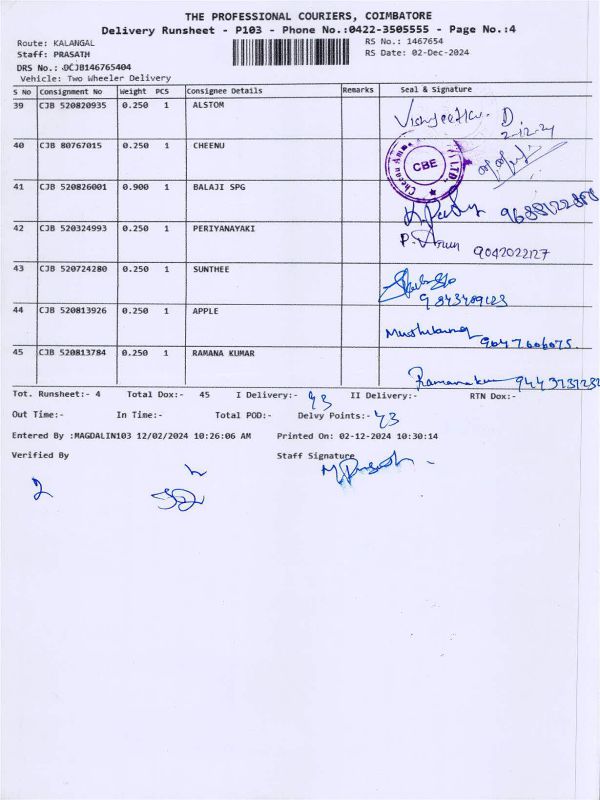 THE PROFESSIONAL COURIERS, COIMBATORE
Delivery Runsheet - P103 - Phone No.:0422-3505555 - Page No.:4
Route: KALANGAL RS No.: 1467654
Staff: PRASATH RS Date: 02-Dec-2024
DRS No.: DCJB146765404
Vehicle: Two Wheeler Delivery
S No Consignment No Weight PCS Consignee Details Remarks Seal & Signature
39 CJB 520820935 0.250 1 ALSTOM
D.
2-12-24
40 CJB 80767015 0.250 1 CHEENU
CBE
LTD.
41 CJB 520826001 0.900 1 BALAJI SPG
42 CJB 520324993 0.250 1 PERIYANAYAKI
P. Arun 9042022127
43 CJB 520724280 0.250 1 SUNTHEE
44 CJB 520813926 0.250 1 APPLE
45 CJB 520813784 0.250 1 RAMANA KUMAR
Ramanakum
Tot. Runsheet:- 4 Total Dox:- 45 I Delivery:- 43 II Delivery:- RTN Dox:-
Out Time:- In Time:- Total POD:- Delvy Points:- 43
Entered By :MAGDALIN103 12/02/2024 10:26:06 AM Printed On: 02-12-2024 10:30:14
Verified By Staff Signature